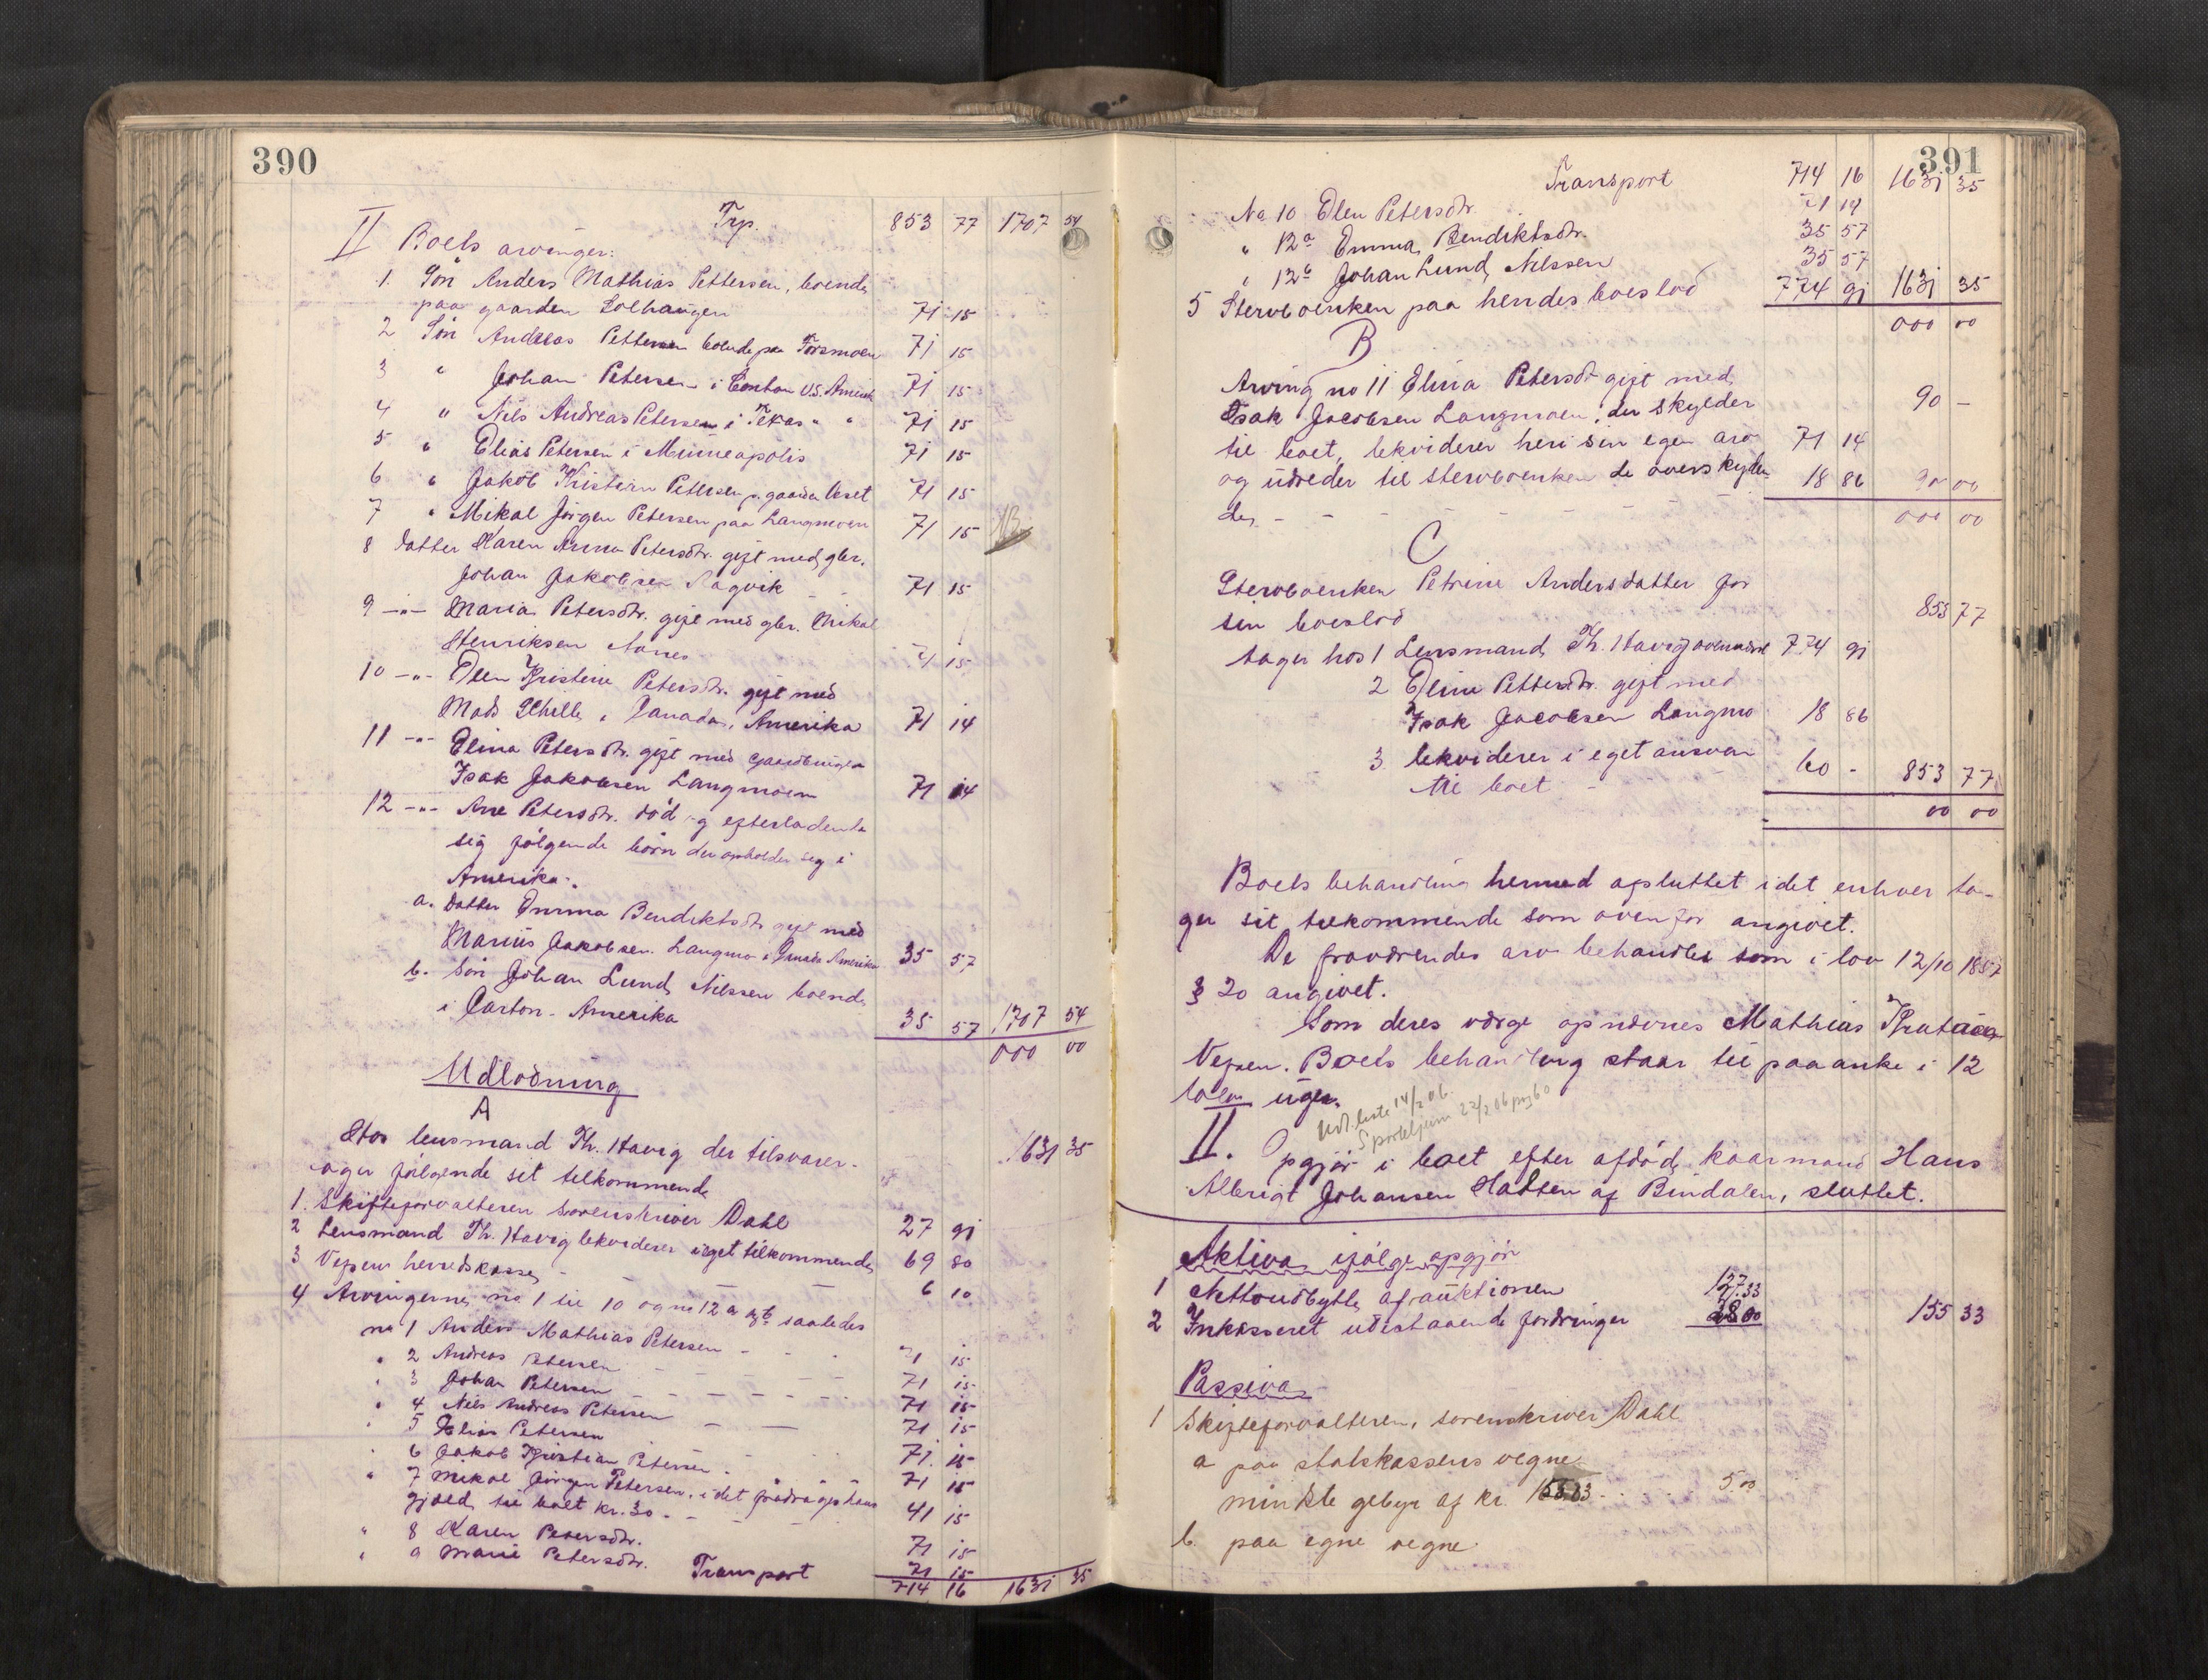 390
Trp. 853 77 1707 54
II Boets arvinger:
1. Søn Anders Mathias Pettersen, boende
paa gaarden Solhaugen 71 15
2 Søn Andreas Pettersen boende paa Torsmoen 71 15
3 " Johan Petersen i Canton U.S. Amerik 71 15
4 " Nils Andreas Petersen i Texas " " 71 15
5 " Elias Petersen i Minneapolis 71 15
6 " Jakob Kristian Petersen p. gaarden 71 15
7 " Mikal Jørgen Petersen paa Langmoen 71 15
8 Datter Karen Anna Petersdtr. gift med gbr.
Johan Jakobsen Sagvik - - 71 15
9 -"- Maria Petersdtr. gift med gbr. Mikal
Henriksen 71 15
10 -"- Olen Kristine Petersdtr. gift med
Mads Schille, i Canada, Amerika 71 14
11 -"- Elina Petersdtr. gift med gaardbruger
Isak Jakobsen Langmoen 71 14
12 -"- Ane Petersdtr. død og efterladende
sig følgende børn der opholder seg i
Amerika:.
a. Datter Emma Bendiktsdtr gift med
Marius Jakobsen Langmo i Canada Amerika 35 57
b. Søn Johan Lund Nilssen boende
i Carton - Amerika 35 57 1707 54
000 00
Udlodning
A
Hos lensmand Th. Havig der tilsvarer - 1631 35
tager følgende sit tilkommende
1. Skifteforvalteren sorenskriver Dahl 27 91
2 Lensmand Th. Havig lekviderer i eget tilkommende 69 80
3 Vefsens herredskasse - - - 6 10
4 Arvingerne no 1 til 10 og no 12 a og b saaledes
no 1 Anders Mathias Petersen - - - 71 15
" 2 Andreas Petersen - - - 71 15
" 3 Johan Petersen - - - - - 71 15
" 4 Nils Andreas Petersen - - 71 15
" 5 Elias Petersen 71 15
" 6 Jakob Kristian Petersen - 71 15
" 7 Mikal Jørgen Petersen, idet fradrages hans
gjæld til boet kr. 30. - - - 41 15
" 8 Karen Petersdtr. 71 15
" 9 Marie Petersdtr. 71 15
Transport 714 16 1631 35
391
Transport 714 16 1631 35
No 10 Olen Petersdtr. 71 14
" 12a Emma Bendiktsdtr. 35 57
" 12b Johan Lund Nilssen 35 57
5 Stervboenken paa hendes boeslod 774 91 1631 35
000 00
B
Arving no 11 Elina Petersdtr gift med
Isak Jacobsen Langmoen, der skylder 90 -
til boet, lekviderer heri sin egen arv 71 14
og udreder til stervboenken de overskyden 18 86 90 00
de - - - - - - - 000 00
C
Stervboenken Petrine Andersdatter for
sin boeslod 853 77
tager hos 1 Lensmand Th. Havig ovennævnt 774 91
2 Eline Pettersdtr. gift med
Isak Jacobsen Langmo 18 86
3. lekviderer i eget ansvar
til boet - 60 - 853 77
00 00
Boets behandling hermed afsluttet idet enhver ta-
ger sit tilkommende som ovenfor angivet.
De fraværendes arv behandles som i lov 12/10 1857
§ 20 angivet.
Som deres værge opnævnes Mathias
Vefsen. Boets behandling staar til paaanke i 12
tolv uger.
Udl. liste 14/2 06.
Sporteljurn 22/2 06 pag 60
II. Opgjør i boet efter afdøde kaarmand Hans
Albrigt Johansen Hatten af Bindalen, sluttet.
Aktiva ifølge opgjør
1 Nettoudbytte af auktionen 127.33
2 Inkasseret udestaaende fordringer 28.00 155 33
Passiva
1 Skifteforvalteren, sorenskriver Dahl.
a paa statskassens vegne
mindste gebyr af kr. 155.33 . . . . . 5.00
b. paa egne vegne.